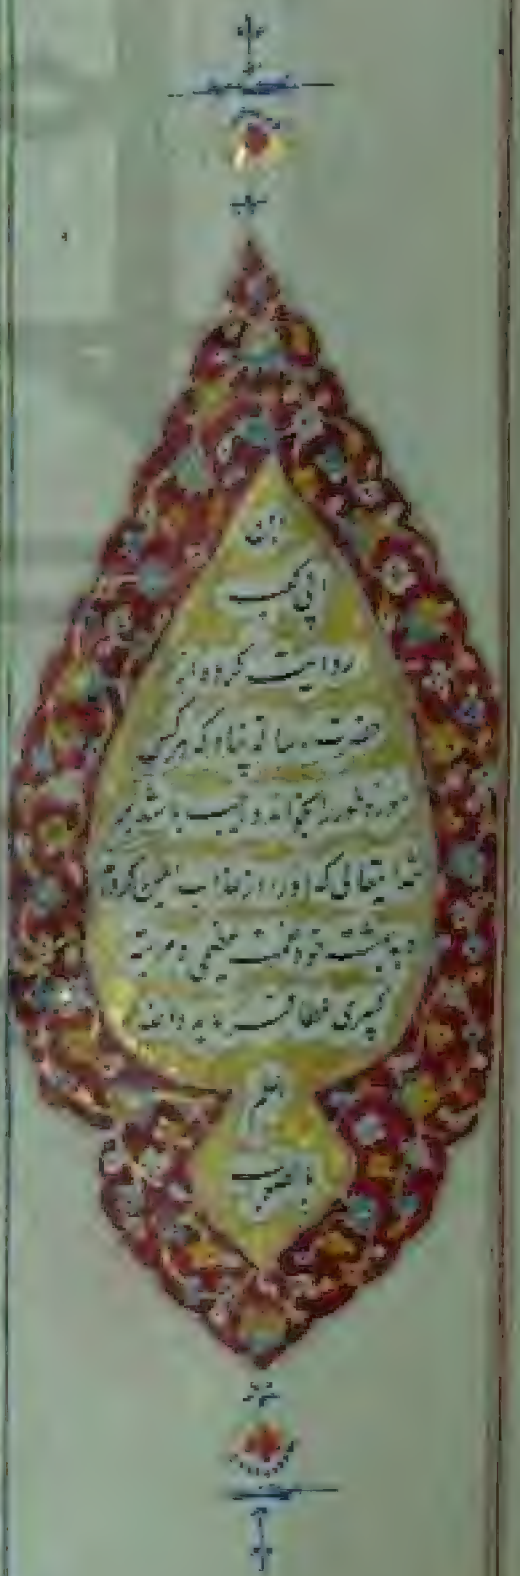 ابن
ابی کعب
روایت کرده از
حضرت رسالت پناه که هر کس
سوره طور را بخواند واجب باشد بر
خدایتعالی که او را از عذاب ایمن کرده
در بهشت خود نعمت و مرتبه
کبیری عطا فرماید والله
اعلم
بالصواب